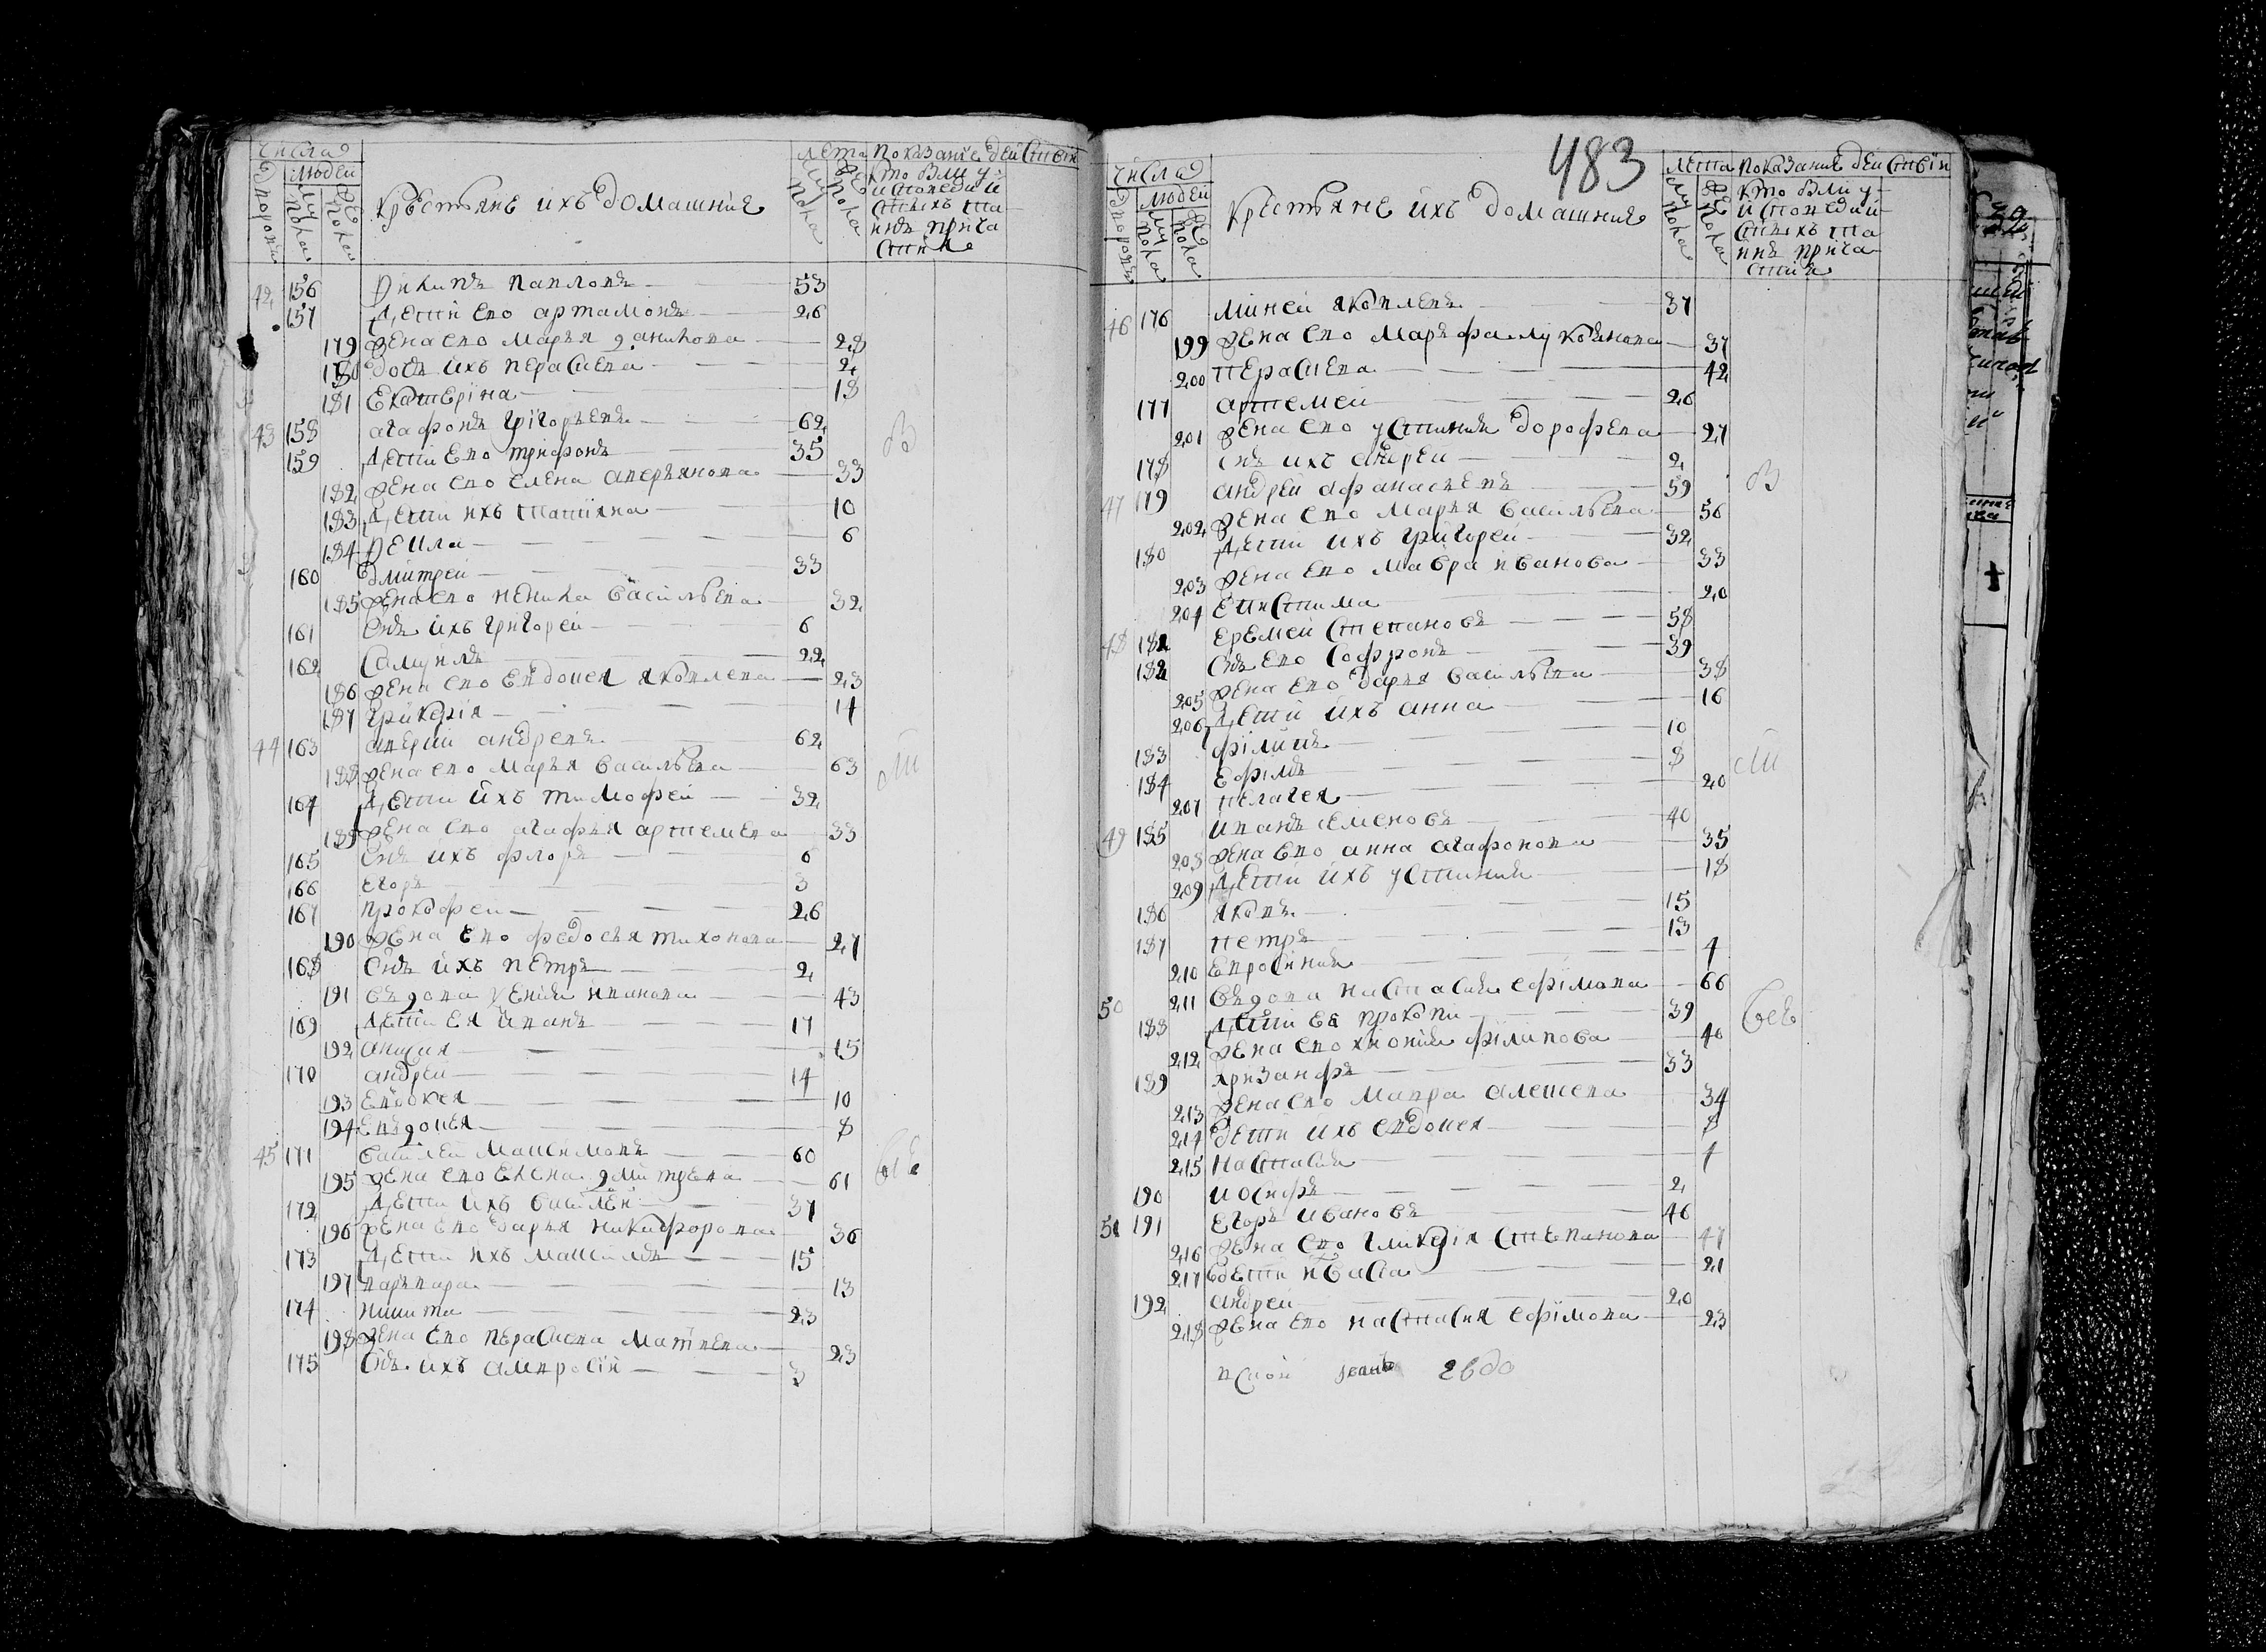 числа
людей
дворовъ
муж пола
жен пола
крестьяне ихъ домашние
лета
муж пола
жен пола
показание действия
кто были у
исповеди и
святыхъ таинъ прича
стия
42 156 Филипъ павловъ 53
157 Дети ево артамонъ 26
179 жена ево марья данилова 28
180 дочь ихъ параскева 2
181 Екатерiна 18
43 158 агафонъ григорьевъ 62
159 Дети Ево трифонъ 35
182 жена ево елена аверьянова 33
183 Дети ихъ татияна 10
184 Фекла 6
160 дмитреи 33
185 жена ево ненила васильева 32
161 Снъ ихъ григореи 6
162 Самуилъ 22
186 жена ево евдокея яковлева 23
187 гликерiя 14
44 163 аверкии андреевъ 62
188 жена ево марья васильева 63
164 Дети ихъ тимофеи 32
189 жена ево агафья артемева 33
165 Снъ ихъ флоръ 6
166 егоръ 3
167 прокофеи 26
190 жена ево федосья тихонова 27
168 Снъ ихъ петръ 2
191 въдова ксения иванова 43
169 Дети ея иванъ 17
192 анисия 15
170 андреи 14
193 Евдокея 10
194 евъдокея 8
45 171 василеи максимовъ 60
195 жена ево елена дмитрева 61
172 Дети ихъ василеи 37
196 жена ево дарья никифорова 36
173 Дети ихъ максимъ 15
197 варъвара 13
174 никита 23
198 жена ево параскева матвева 23
175 Снъ ихъ амвросiи 3
483
числа
людей
дворовъ
муж пола
жен пола
крестьяне ихъ домашние
лета
муж пола
жен пола
показание действия
кто были у
исповеди и
святыхъ таинъ прича
стия
46 176 минеи яковлевъ 37
199 жена ево марьфа лукоянова 37
200 перасkева 42
177 артемеи 26
201 жена ево устиния дорофеева 27
178 снъ ихъ андреи 2
47 179 андреи афанасьевъ 59
202 жена ево марья васильева 56
180 Дети ихъ григореи 32
203 жена ево мавра иванова 33
204 епистима 20
48 181 еремеи степановъ 58
182 Снъ ево софронъ 39
205 жена ево дарья васильева 38
206 Дети ихъ анна 16
183 филипъ 10
184 ефимъ 8
207 пелагея 20
49 185 иванъ семеновъ 40
208 жена ево анна агафонова 35
209 Дети ихъ устиния 18
186 яковъ 15
187 петръ 13
210 Евросиния 4
50 211 въдова настасия ефимова 66
188 Дети ея прокопи 39
212 жена ево хиония филипова 40
189 хризанфъ 33
213 жена ево мавра алексева 34
214 дети ихъ евдокея 8
215 настасия 4
190 иосифъ 2
51 191 егоръ ивановъ 46
216 жена ево гликерiя степанова 47
217 дети иваса 21
192 андреи 20
218 жена ево настасия ефимова 23